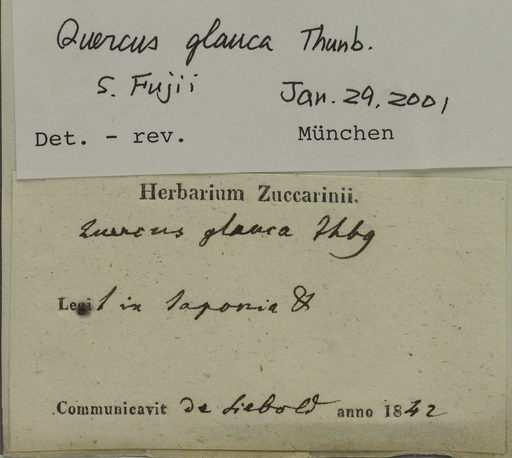 Quercus glauca Thunb.
S. Fujii Jan. 29, 2001
Det. - rev. München
Herbarium Zuccarinii.
Quercus glauca Thbg
Legit in Japonia
Communicavit de Siebold anno 1842